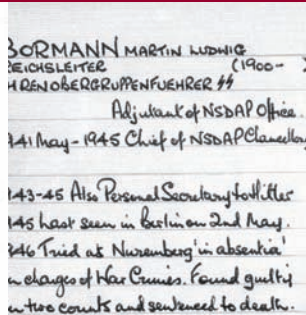 BORMANN MARTIN LUDWIG
EICHSLEITER (1900-
HRENOBERGRUPPENFUEHRER SS
Adjutant of NSDAP Office.
941 May - 1945 Chief of NSDAP Chancellory
943-45 Also Personal Secretary to Hitler
945 Last seen in Berlin on 2nd May.
946 Tried at Nuremberg 'in absentia'
n charges of War Crimes. Found guilty
n two counts and sentenced to death.